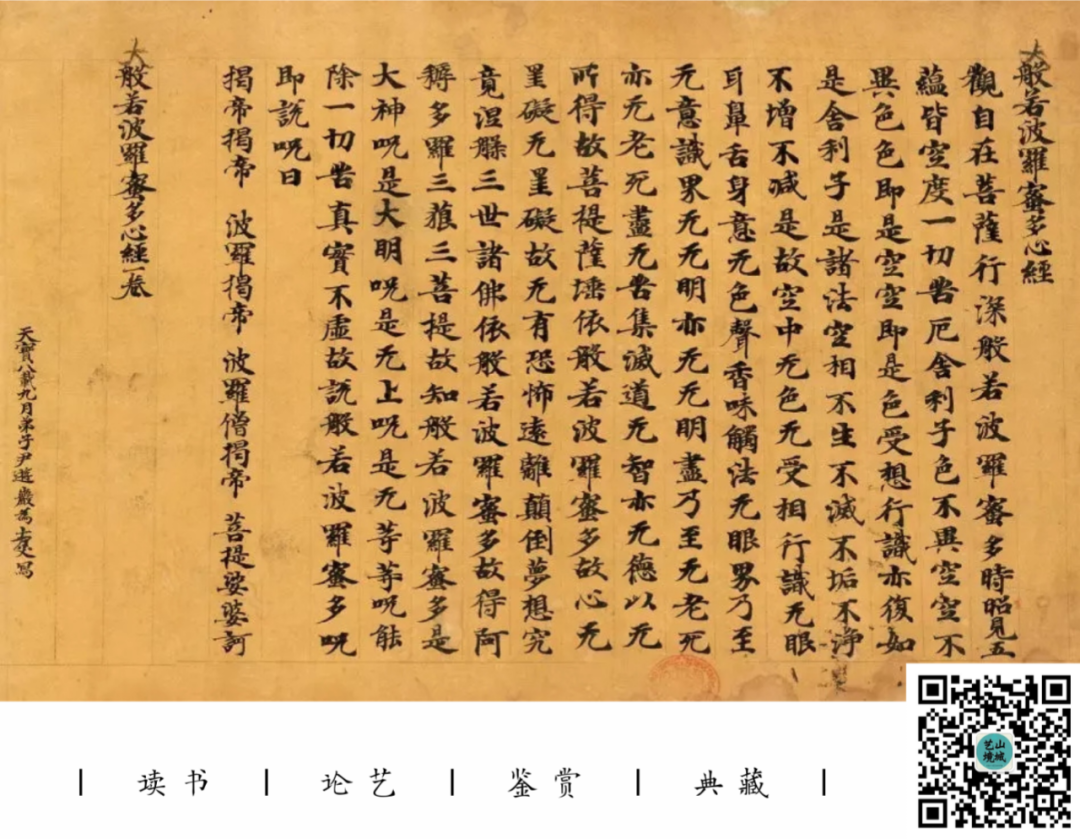 大般若波羅蜜多心經
觀自在菩薩行深般若波羅蜜多時昭見五
蘊皆空度一切苦厄舍利子色不異空空不
異色色即是空空即是色受想行識亦復如
是舍利子是諸法空相不生不滅不垢不淨
不增不減是故空中无色无受相行識无眼
耳鼻舌身意无色聲香味觸法无眼界乃至
无意識界无无明亦无无明盡乃至无老死
亦无老死盡无苦集滅道无智亦无德以无
所得故菩提薩埵依般若波羅蜜多故心无
罣礙无罣礙故无有恐怖遠離顛倒夢想究
竟涅槃三世諸佛依般若波羅蜜多故得阿
耨多羅三藐三菩提故知般若波羅蜜多是
大神呪是大明呪是无上呪是无等等呪能
除一切苦真實不虛故說般若波羅蜜多呪
即說呪曰
揭帝揭帝 波羅揭帝 波羅僧揭帝 菩提娑婆訶
大般若波羅蜜多心經一卷
天寶八載九月弟子尹遊巖為寫
| 读书 | 论艺 | 鉴赏 | 典藏 |
艺山
境城